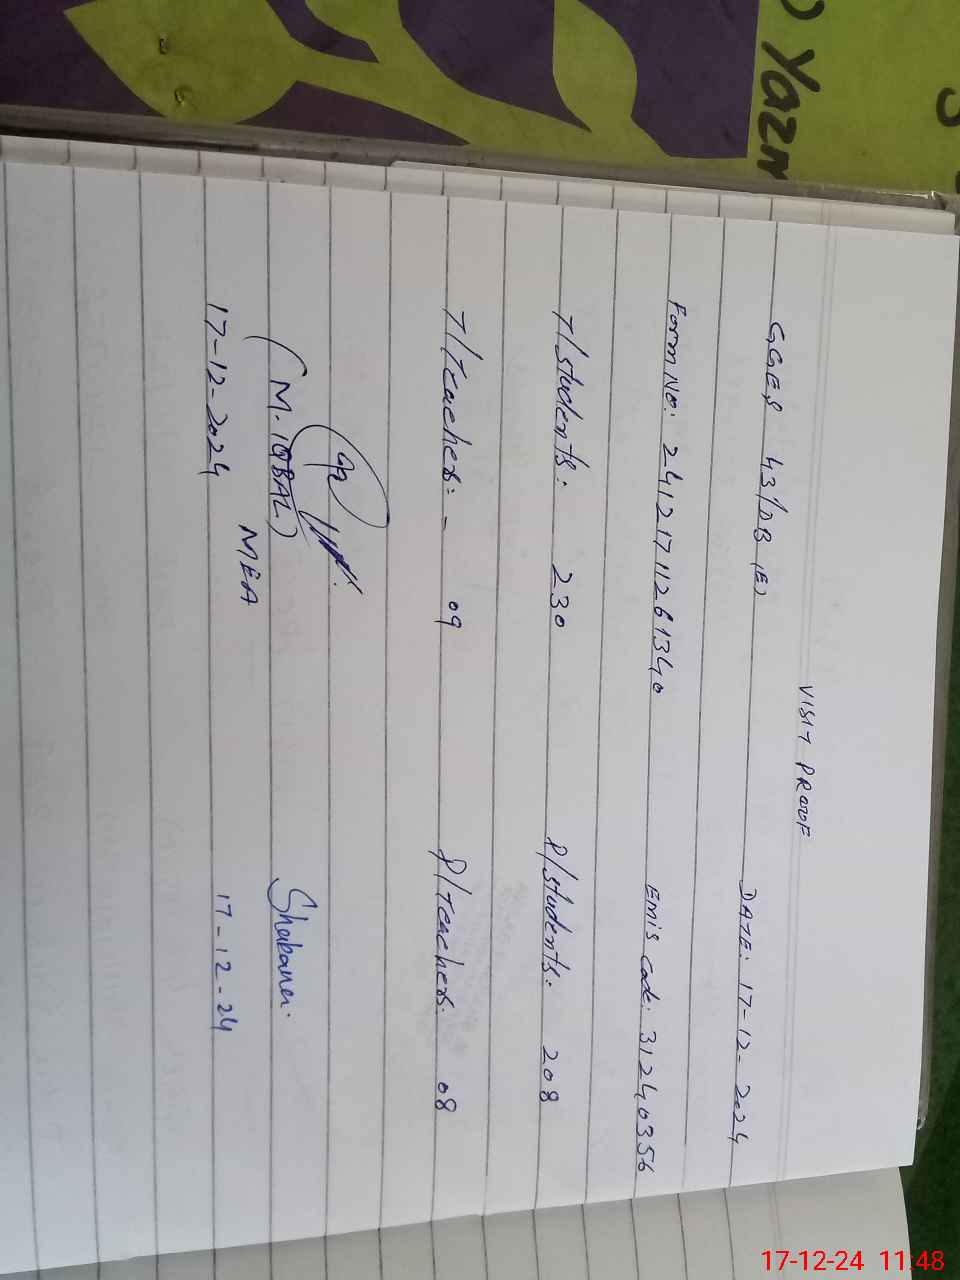 ) Yazm
VISIT PROOF
GGES 43/DB (E) DATE: 17-12-2024
Form No: 24121711261340 Emis code: 31240356
T/Students: 230 P/Students: 208
T/Teachers:- 09 P/Teachers: 08
(M. IQBAL) Shabana.
MEA
17-12-2024 17-12-24
17-12-24 11:48